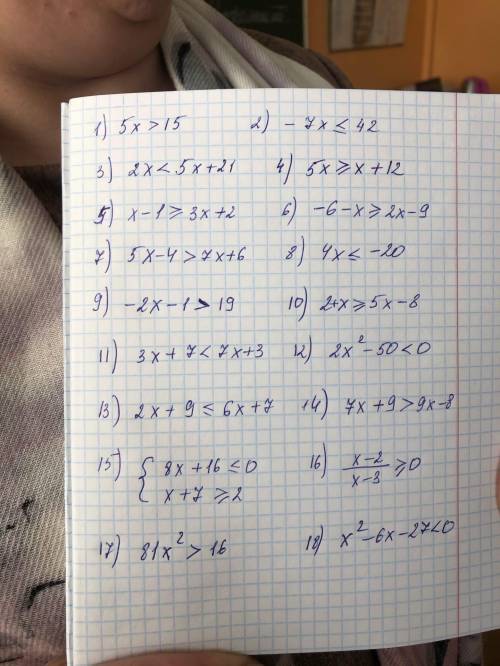 1) 5x > 15 2) -7x ≤ 42
3) 2x < 5x+21 4) 5x ≥ x+12
5) x-1 ≥ 3x+2 6) -6-x ≥ 2x-9
7) 5x-4 > 7x+6 8) 4x ≤ -20
9) -2x-1 > 19 10) 2+x ≥ 5x-8
11) 3x+7 < 7x+3 12) 2x²-50 < 0
13) 2x+9 ≤ 6x+7 14) 7x+9 > 9x-8
15) { 8x+16 ≤ 0 16) x-2
x+7 ≥ 2 x-3 ≥ 0
17) 81x² > 16 18) x²-6x-27 < 0